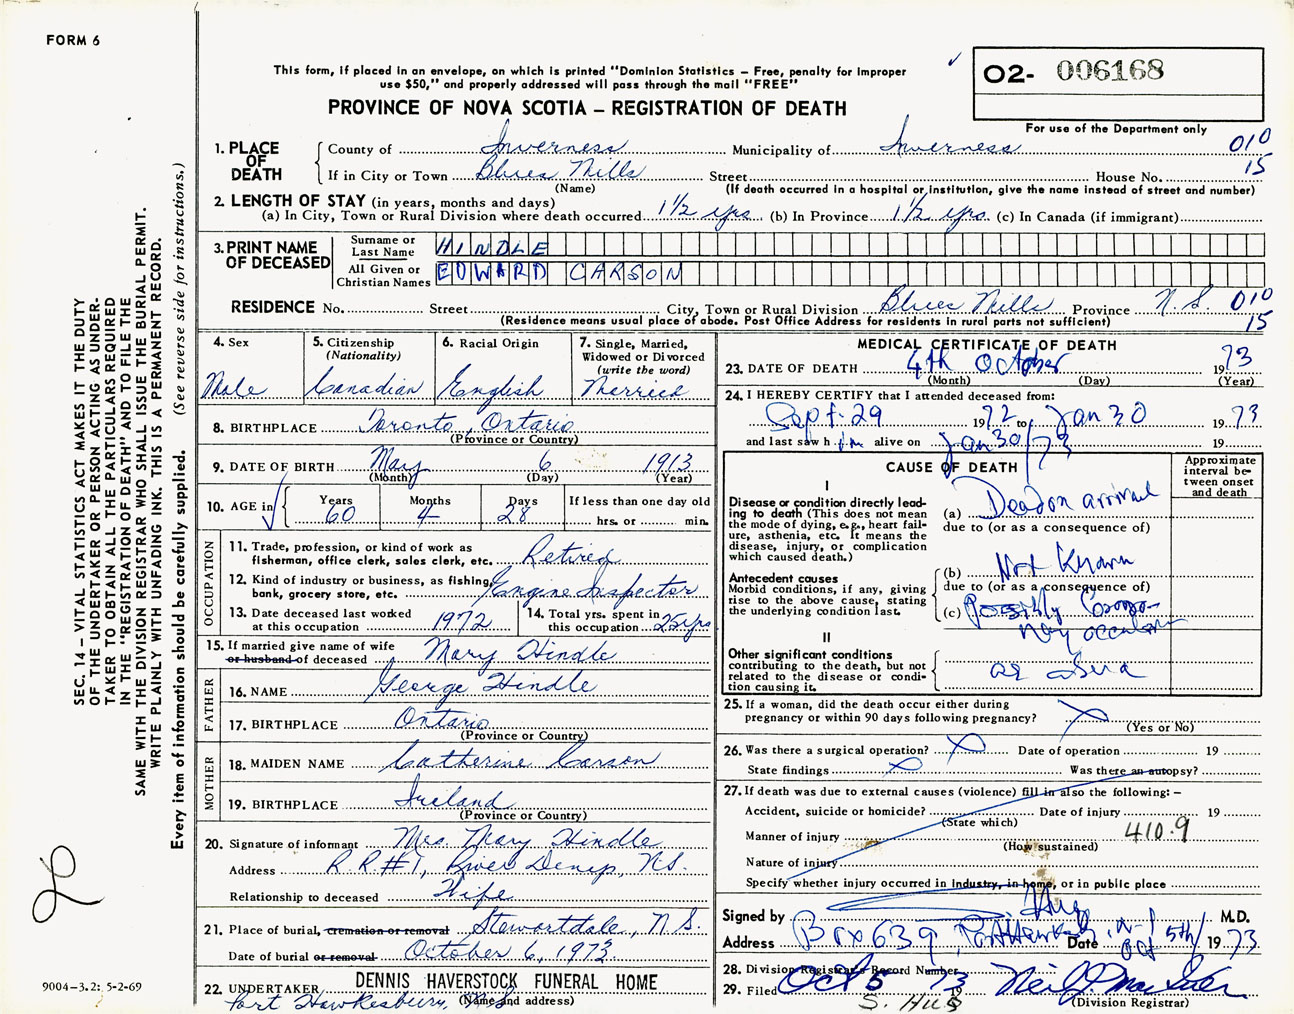 FORM 6
This form, if placed in an envelope, on which is printed "Dominion Statistics – Free, penalty for improper
use $50," and properly addressed will pass through the mail "FREE"
PROVINCE OF NOVA SCOTIA – REGISTRATION OF DEATH
O2- 006168
For use of the Department only
1. PLACE OF DEATH
County of Inverness Municipality of Inverness 010
If in City or Town Blues Mills Street House No. 15
(Name) (If death occurred in a hospital or institution, give the name instead of street and number)
2. LENGTH OF STAY (in years, months and days)
(a) In City, Town or Rural Division where death occurred 1½ yrs (b) In Province 1½ yrs. (c) In Canada (if immigrant)
3. PRINT NAME OF DECEASED
Surname or Last Name HINDLE
All Given or Christian Names EDWARD CARSON
RESIDENCE No. Street City, Town or Rural Division Blues Mills Province N.S. 010
(Residence means usual place of abode. Post Office Address for residents in rural parts not sufficient) 15
4. Sex Male
5. Citizenship (Nationality) Canadian
6. Racial Origin English
7. Single, Married, Widowed or Divorced (write the word) Married
8. BIRTHPLACE Toronto, Ontario
(Province or Country)
9. DATE OF BIRTH May 6 1913
(Month) (Day) (Year)
10. AGE in Years 60 Months 4 Days 28 If less than one day old
hrs. or min.
OCCUPATION
11. Trade, profession, or kind of work as
fisherman, office clerk, sales clerk, etc. Retired
12. Kind of industry or business, as fishing,
bank, grocery store, etc. Engine Inspector
13. Date deceased last worked
at this occupation 1972
14. Total yrs. spent in
this occupation 25 yrs
15. If married give name of wife
or husband of deceased Mary Hindle
FATHER
16. NAME George Hindle
17. BIRTHPLACE Ontario
(Province or Country)
MOTHER
18. MAIDEN NAME Catherine Carson
19. BIRTHPLACE Ireland
(Province or Country)
20. Signature of informant Mrs. Mary Hindle
Address R.R.#1, River Denys, N.S.
Relationship to deceased Wife
21. Place of burial, cremation or removal Stewartdale, N.S.
Date of burial or removal October 6, 1973
22. UNDERTAKER DENNIS HAVERSTOCK FUNERAL HOME
Port Hawkesbury, N.S. (Name and address)
MEDICAL CERTIFICATE OF DEATH
23. DATE OF DEATH 4th October 1973
(Month) (Day) (Year)
24. I HEREBY CERTIFY that I attended deceased from:
Sept. 29 1972 to Jan 30 1973
and last saw him alive on Jan 30/73 19
CAUSE OF DEATH
Approximate interval between onset and death
I
Disease or condition directly leading to death (This does not mean the mode of dying, e.g., heart failure, asthenia, etc. It means the disease, injury, or complication which caused death.)
(a) Dead on arrival
due to (or as a consequence of)
Antecedent causes
Morbid conditions, if any, giving rise to the above cause, stating the underlying condition last.
(b) Not Known
due to (or as a consequence of)
(c) Possibly Coronary occlusion
II
Other significant conditions
contributing to the death, but not related to the disease or condition causing it.
25. If a woman, did the death occur either during
pregnancy or within 90 days following pregnancy?
(Yes or No)
26. Was there a surgical operation? Date of operation 19
State findings Was there an autopsy?
27. If death was due to external causes (violence) fill in also the following: –
Accident, suicide or homicide? Date of injury 19
(State which)
Manner of injury 410.9
(How sustained)
Nature of injury
Specify whether injury occurred in industry, in home, or in public place
Signed by M.D.
Address Box 639, Port Hawkesbury, N.S. Date Oct 5th/ 1973
28. Division Registrar's Record Number
29. Filed Oct 5 1973
(Division Registrar)
SEC. 14 – VITAL STATISTICS ACT MAKES IT THE DUTY
OF THE UNDERTAKER OR PERSON ACTING AS UNDER-
TAKER TO OBTAIN ALL THE PARTICULARS REQUIRED
IN THE "REGISTRATION OF DEATH" AND TO FILE THE
SAME WITH THE DIVISION REGISTRAR WHO SHALL ISSUE THE BURIAL PERMIT.
WRITE PLAINLY WITH UNFADING INK. THIS IS A PERMANENT RECORD.
Every item of information should be carefully supplied. (See reverse side for instructions.)
9004-3.2: 5-2-69